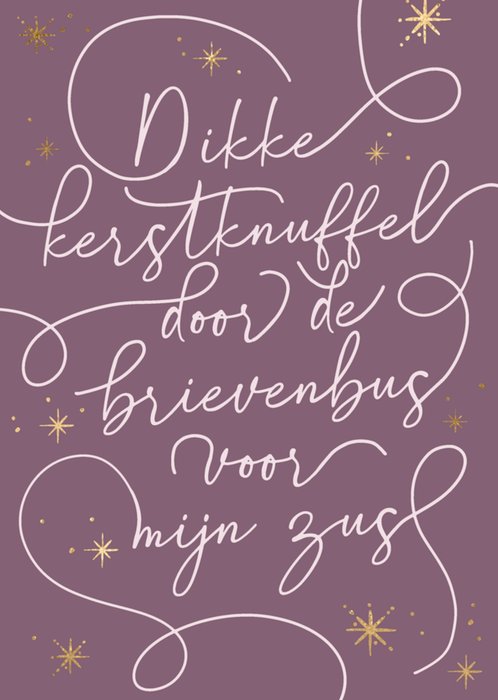 Dikke
kerstknuffel
door de
brievenbus
voor
mijn zus